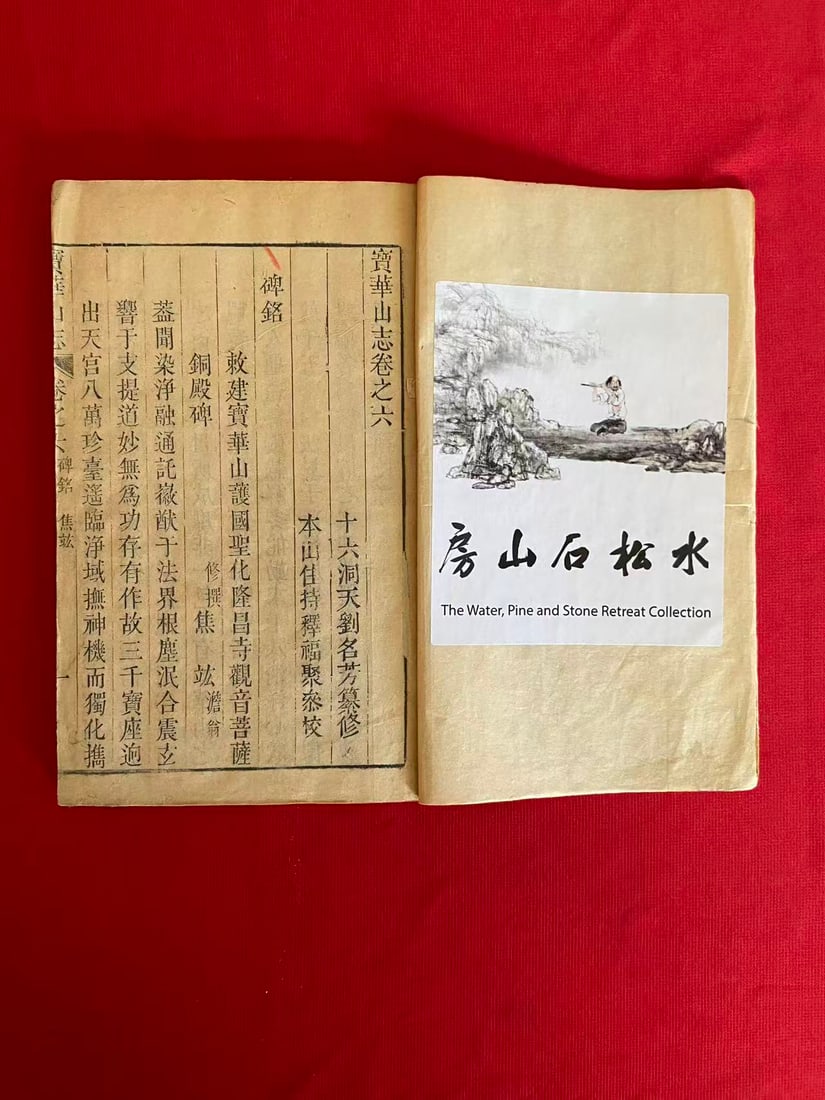 寶華山志卷之六
十六洞天劉名芳纂修
本山住持釋福聚叅校
碑銘
敕建寶華山護國聖化隆昌寺觀音菩薩
銅殿碑
修撰焦竑澹翁
葢聞染淨融通託嶽猷于法界根塵泯合震玄
響于支提道妙無爲功存有作故三千寶座逈
出天宮八萬珍臺遥臨淨域撫神機而獨化擕
寶華山志
卷之六
碑銘
焦竑
一
房山石松水
The Water, Pine and Stone Retreat Collection